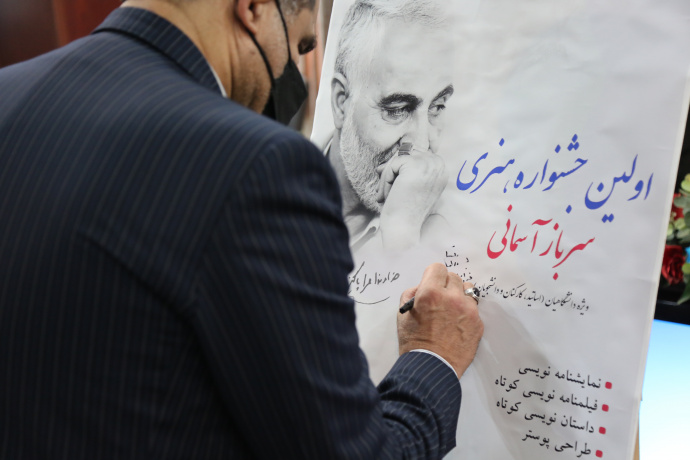 اولین جشنواره هنری
سرباز آسمانی
ویژه دانشگاهیان (اساتید، کارکنان و دانشجویان
نمایشنامه نویسی
فیلمنامه نویسی کوتاه
داستان نویسی کوتاه
طراحی پوستر
خداوندا مرا پاکیزه